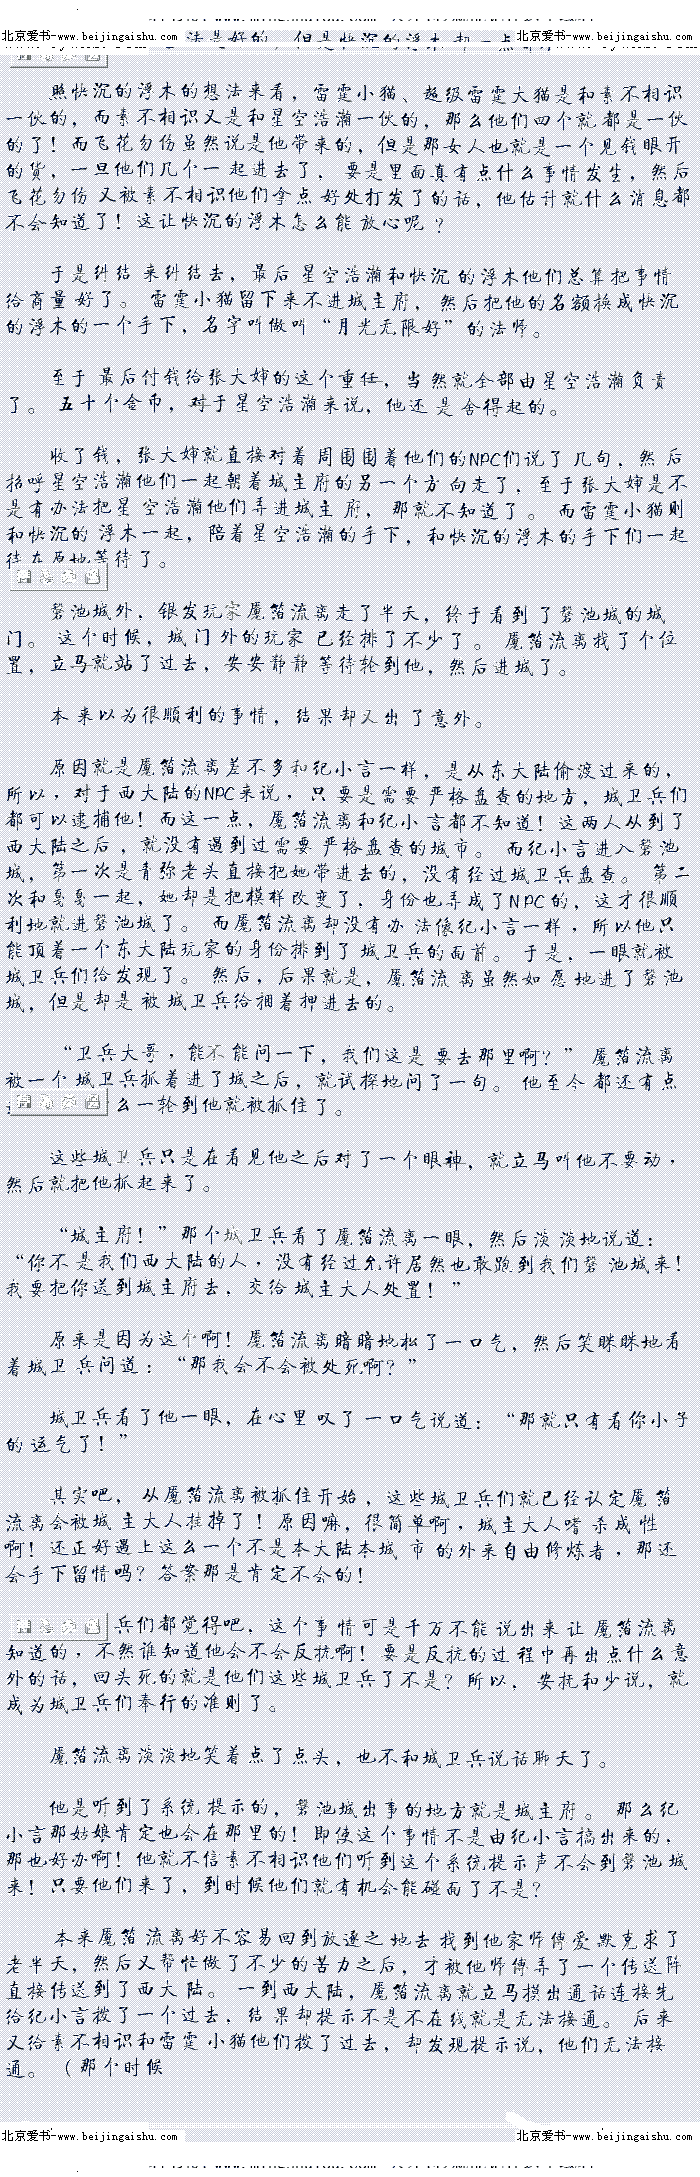 北京爱书-www.beijingaishu.com 北京爱书-www.beijingaishu.com
法是好的，但是快沉的浮木却一点都
照快沉的浮木的想法来看，雷霆小猫、超级雷霆大猫是和素不相识
一伙的，而素不相识又是和星空浩瀚一伙的，那么他们四个就都是一伙
的了！而飞花勿伤虽然说是他带来的，但是那女人也就是一个见钱眼开
的货，一旦他们几个一起进去了，要是里面真有点什么事情发生，然后
飞花勿伤又被素不相识他们拿点好处打发了的话，他估计就什么消息都
不会知道了！这让快沉的浮木怎么能放心呢？
于是纠结来纠结去，最后星空浩瀚和快沉的浮木他们总算把事情
给商量好了。雷霆小猫留下来不进城主府，然后把他的名额换成快沉
的浮木的一个手下，名字叫做叫“月光无限好”的法师。
至于最后付钱给张大婶的这个重任，当然就全部由星空浩瀚负责
了。五十个金币，对于星空浩瀚来说，他还是舍得起的。
收了钱，张大婶就直接对着周围围着他们的NPC们说了几句，然后
招呼星空浩瀚他们一起朝着城主府的另一个方向走了，至于张大婶是不
是有办法把星空浩瀚他们弄进城主府，那就不知道了。而雷霆小猫则
和快沉的浮木一起，陪着星空浩瀚的手下，和快沉的浮木的手下们一起
待在原地等待了。
磐池城外，银发玩家魔笛流离走了半天，终于看到了磐池城的城
门。这个时候，城门外的玩家已经排了不少了。魔笛流离找了个位
置，立马就站了过去，安安静静等待轮到他，然后进城了。
本来以为很顺利的事情，结果却又出了意外。
原因就是魔笛流离差不多和纪小言一样，是从东大陆偷渡过来的，
所以，对于西大陆的NPC来说，只要是需要严格盘查的地方，城卫兵们
都可以逮捕他！而这一点，魔笛流离和纪小言都不知道！这两人从到了
西大陆之后，就没有遇到过需要严格盘查的城市。而纪小言进入磐池
城，第一次是青弥老头直接把她带进去的，没有经过城卫兵盘查。第二
次和戛戛一起，她却是把模样改变了，身份也弄成了NPC的，这才很顺
利地就进磐池城了。而魔笛流离却没有办法像纪小言一样，所以他只
能顶着一个东大陆玩家的身份排到了城卫兵的面前。于是，一眼就被
城卫兵们给发现了。然后，后果就是，魔笛流离虽然如愿地进了磐池
城，但是却是被城卫兵给拥着押进去的。
“卫兵大哥，能不能问一下，我们这是要去那里啊？”魔笛流离
被一个城卫兵抓着进了城之后，就试探地问了一句。他至今都还有点
么一轮到他就被抓住了。
这些城卫兵只是在看见他之后对了一个眼神，就立马叫他不要动，
然后就把他抓起来了。
“城主府！”那个城卫兵看了魔笛流离一眼，然后淡淡地说道：
“你不是我们西大陆的人，没有经过允许居然也敢跑到我们磐池城来！
我要把你送到城主府去，交给城主大人处置！”
原来是因为这个啊！魔笛流离暗暗地松了一口气，然后笑眯眯地看
着城卫兵问道：“那我会不会被处死啊？”
城卫兵看了他一眼，在心里叹了一口气说道：“那就只有看你小子
的运气了！”
其实吧，从魔笛流离被抓住开始，这些城卫兵们就已经认定魔笛
流离会被城主大人挂掉了！原因嘛，很简单啊，城主大人嗜杀成性
啊！还正好遇上这么一个不是本大陆本城市的外来自由修炼者，那还
会手下留情吗？答案那是肯定不会的！
兵们都觉得吧，这个事情可是千万不能说出来让魔笛流离
知道的，不然谁知道他会不会反抗啊！要是反抗的过程中再出点什么意
外的话，回头死的就是他们这些城卫兵了不是？所以，安抚和少说，就
成为城卫兵们奉行的准则了。
魔笛流离淡淡地笑着点了点头，也不和城卫兵说话聊天了。
他是听到了系统提示的，磐池城出事的地方就是城主府。那么纪
小言那姑娘肯定也会在那里的！即使这个事情不是由纪小言搞出来的，
那也好办啊！他就不信素不相识他们听到这个系统提示声不会到磐池城
来！只要他们来了，到时候他们就有机会能碰面了不是？
本来魔笛流离好不容易回到放逐之地去找到他家师傅爱默克求了
老半天，然后又帮忙做了不少的苦力之后，才被他师傅弄了一个传送阵
直接传送到了西大陆。一到西大陆，魔笛流离就立马摸出通话连接先
给纪小言拨了一个过去，结果却提示不是不在线就是无法接通。后来
又给素不相识和雷霆小猫他们拨了过去，却发现提示说，他们无法接
通。（那个时候
北京爱书-www.beijingaishu.com 北京爱书-www.beijingaishu.com